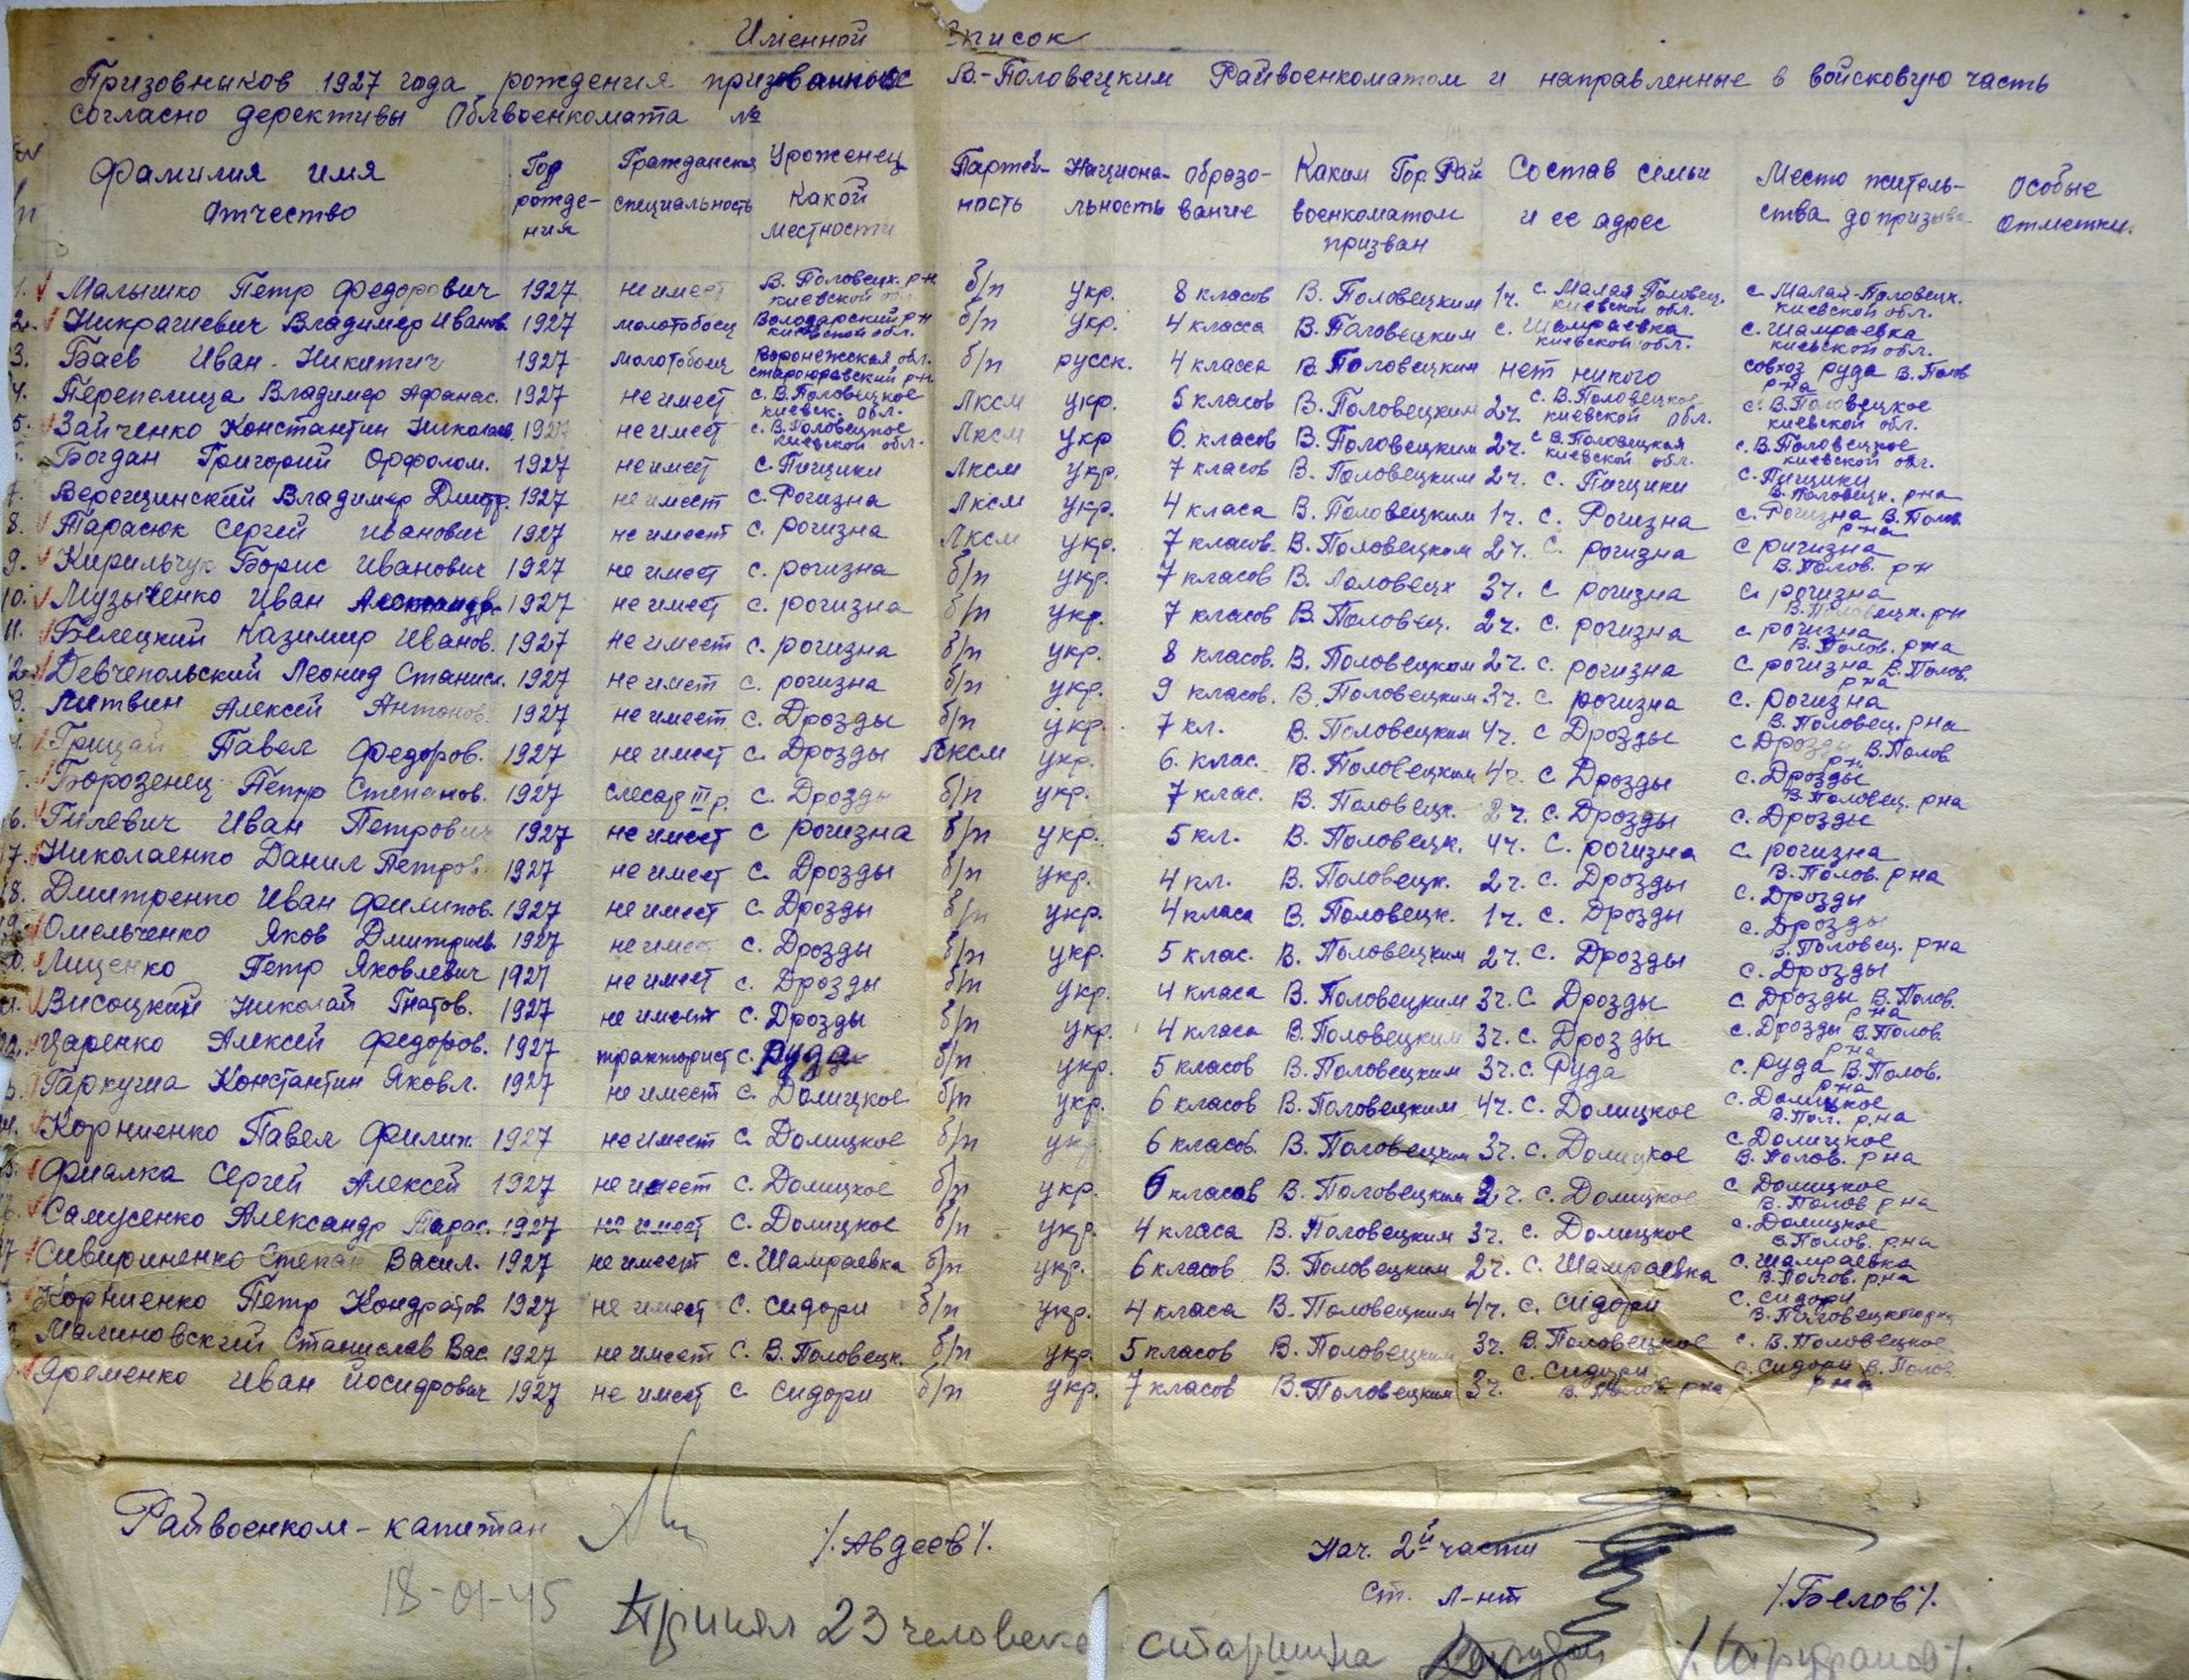 Именной список
Призовников 1927 года рождения призванных В.-Половецким Райвоенкоматом и направленные в войсковую часть
согласно дерективы Облвоенкомата №
Фамилия имя отчество Год рождения Гражданская специальность Уроженец какой местности Партейность Национальность образование Каким Гор.Рай военкоматом призван Состав семьи и ее адрес Место жительства до призыва особые отметки.
1. Малышко Петр Федорович 1927 не имеет В. Половецк. р-н киевской обл. б/п укр. 8 класов В. Половецким 1ч. с. Малая Половец. киевской обл. с. Малая-Половецк. киевской обл.
2. Никрагиевич Владимер Иванов. 1927 молотобоец Володарский р-н киевской обл. б/п укр. 4 класса В. Половецким с. Шамраевка киевской обл. с. Шамраевка киевской обл.
3. Баев Иван Никитич 1927 молотобоец Воронежская обл. староюравский р-н б/п русск. 4 класса В. Половецким нет никого совхоз руда В. Полов р-на
4. Перепелица Владимер Афанас. 1927 не имеет с. В. Половецкое киевск. обл. лксм укр. 5 класов В. Половецким 2ч. с. В. Половецкое киевской обл. с. В. Половецкое киевской обл.
5. Зайченко Константин Николаев. 1927 не имеет с. В. Половецкое киевской обл. лксм укр 6 класов В. Половецким 2ч. с В. Половецкая киевской обл. с. В. Половецкое киевской обл.
Богдан Григорий Орфолом. 1927 не имеет с. Пищики лксм укр. 7 класов В. Половецким 2ч. с. Пищики с. Пищики В. Половецк. р-на
7. Верещинский Владимер Дмитр. 1927 не имеет с. Рогизна лксм укр. 4 класа В. Половецким 1ч. с. Рогизна с. Рогизна В. Полов. р-на
8. Тарасюк Сергей Иванович 1927 не имеет с. рогизна лксм укр. 7 класов. В. Половецким 2ч. с. рогизна с ригизна В. Полов. р-н
9. Кирильчук Борис Иванович 1927 не имеет с. рогизна б/п укр. 7 класов В. Половецк 3ч. с рогизна с. рогизна В. Половецк. р-н
10. Музыченко Иван Александр. 1927 не имеет с. рогизна б/п укр. 7 класов В. Половец. 2ч. с. рогизна с. рогизна В. Полов. р-на
11. Белецкий Казимир Иванов. 1927 не имеет с. рогизна б/п укр. 8 класов. В. Половецким 2ч. с. рогизна с рогизна В. Полов. р-на
12. Девчепольский Леонид Станисл. 1927 не имеет с. рогизна б/п укр. 9 класов. В. Половецким 3ч. с. рогизна с. рогизна В. Половец. р-на
3. Литвин Алексей Антонов. 1927 не имеет с. Дрозды б/п укр. 7 кл. В. Половецким 4ч. с Дрозды с Дрозды В. Полов р-н
Грицай Павел Федоров. 1927 не имеет с. Дрозды лксм укр. 6. клас. В. Половецким 4ч. с Дрозды с. Дрозды В. Половец. р-на
Борозенец Петр Степанов. 1927 слесар III р. с. Дрозды б/п укр. 7 клас. В. Половецк. 2ч. с. Дрозды с. Дрозды
6. Гилевич Иван Петрович 1927 не имеет с рогизна б/п укр. 5 кл. В. Половецк. 4ч. с. рогизна с. рогизна В. Полов. р-на
17. Николаенко Данил Петров. 1927 не имеет с. Дрозды б/п укр. 4 кл. В. Половецк. 2ч. с. Дрозды с. Дрозды
18. Дмитренко Иван Филипов. 1927 не имеет с. Дрозды б/п укр. 4 класа В. Половецк. 1ч. с. Дрозды с. Дрозды В. Половец. р-на
19. Омельченко Яков Дмитриев. 1927 не имеет с. Дрозды б/п укр. 5 клас. В. Половецким 2ч. с. Дрозды с. Дрозды
0. Лищенко Петр Яковлевич 1927 не имеет с. Дрозды б/п укр. 4 класа В. Половецким 3ч. с. Дрозды с. Дрозды В. Полов. р-на
21. Висоцкий Николай Гнатов. 1927 не имеет с. Дрозды б/п укр. 4 класа В. Половецким 3ч. с. Дрозды с. Дрозды В. Полов. р-на
22. Царенко Алексей Федоров. 1927 тракторист с. Руда б/п укр. 5 класов В. Половецким 3ч. с. Руда с. руда В. Полов. р-на
3. Гаркуша Константин Яковл. 1927 не имеет с. Долицкое б/п укр. 6 класов В. Половецким 4ч. с. Долицкое с. Долицкое В. Пол. р-на
4. Корниенко Павел Филип. 1927 не имеет с. Долицкое б/п укр. 6 класов. В. Половецким 3ч. с. Долицкое с. Долицкое В. Полов. р-на
5. Фиалка Сергей Алексей 1927 не имеет с. Долицкое б/п укр. 6 класов В. Половецким 2ч. с. Долицкое с Долицкое В. Полов р-на
6. Самусенко Александр Тарас. 1927 не имеет с. Долицкое б/п укр. 4 класа В. Половецким 3ч. с. Долицкое с. Долицкое В. Полов. р-на
7 Сивириненко Степан Васил. 1927 не имеет с. Шамраевка б/п укр. 6 класов В. Половецким 2ч. с. Шамраевка с. Шамраевка В. Полов. р-на
Корниенко Петр Кондратов 1927 не имеет с. Сидори б/п укр. 4 класа В. Половецким 4ч. с. Сидори с. Сидори В. Половецкого р-на
Малиновский Станислав Вас. 1927 не имеет с. В. Половецк. б/п укр. 5 класов В. Половецким 3ч. В. Половецкое с. В. Половецкое
Яременко Иван Иосидрович 1927 не имеет с. Сидори б/п укр. 7 класов В. Половецким 3ч. с. Сидори В. Полов. р-на с. Сидори В. Полов. р-на
Райвоенком - капитан /Авдеев/.
Нач. 2й части
ст. л-нт /Белов/.
18-01-45
Принял 23 человека старшина